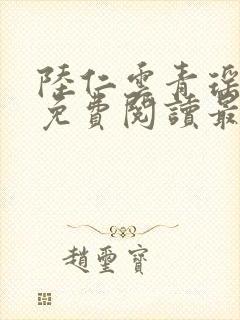 陸仁雲青瑶
免費閱讀最
趙璽寶